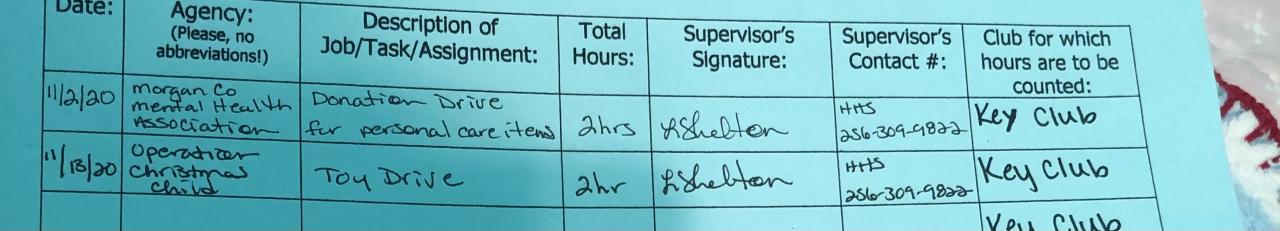 Date:
Agency:
(Please, no
abbreviations!)
Description of
Job/Task/Assignment:
Total
Hours:
Supervisor's
Signature:
Supervisor's
Contact #:
Club for which
hours are to be
counted:
11/2/20
Morgan Co
mental Health
Association
Donation Drive
for personal care items
2hrs
LShelton
HHS
256-309-9822
Key Club
11/13/20
Operation
Christmas
Child
Toy Drive
2hr
LShelton
HHS
256-309-9822
Key Club
Key Club